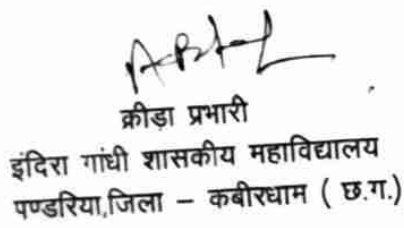 क्रीड़ा प्रभारी
इंदिरा गांधी शासकीय महाविद्यालय
पण्डरिया,जिला – कबीरधाम ( छ.ग.)